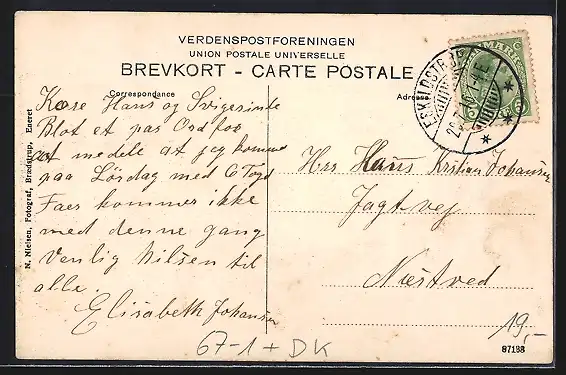 VERDENSPOSTFORENINGEN
UNION POSTALE UNIVERSELLE
BREVKORT - CARTE POSTALE
Correspondance
Kære Hans og Svigerinde
Blot et par Ord for
at medele at jeg kommer
paa Lörsdag med 6 Toget
Faer kommer ikke
med denne gang
Venlig Hilsen til
alle.
Elisabeth Johansen
Adresse
Hrs Hans Kristian Johansen
Jagtvej
Næstved
N. Nielsen, Fotograf, Brædstrup, Eneret
ESKILDSTRUP
DANMARK
67-1 + DK
19,-
87198